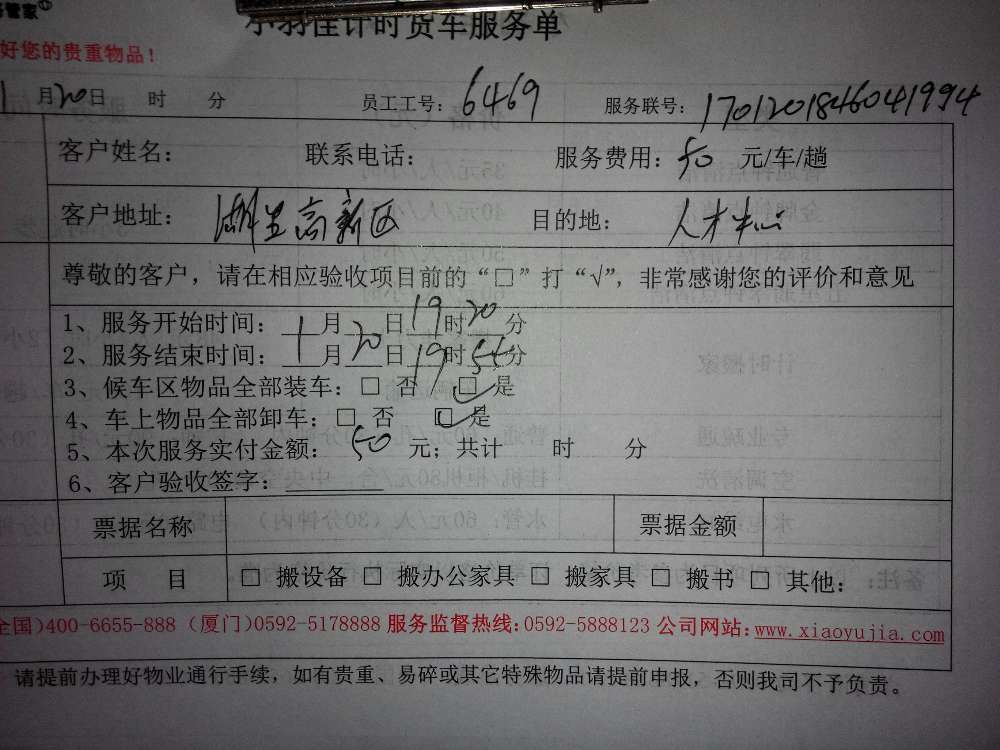 管家
小羽佳计时货车服务单
好您的贵重物品！
1月20日 时 分 员工工号：6469 服务联号：1701201846041994
客户姓名： 联系电话： 服务费用：50 元/车/趟
客户地址：湖里高新区 目的地：人才中心
尊敬的客户，请在相应验收项目前的“□”打“√”，非常感谢您的评价和意见
1、服务开始时间：＿＿月＿＿日19时20分
2、服务结束时间：1月20日19时55分
3、候车区物品全部装车：□ 否 ☑ 是
4、车上物品全部卸车：□ 否 ☑ 是
5、本次服务实付金额：50 元；共计 时 分
6、客户验收签字：
票据名称 票据金额
项 目 □ 搬设备 □ 搬办公家具 □ 搬家具 □ 搬书 □ 其他：
全国)400-6655-888 (厦门)0592-5178888 服务监督热线:0592-5888123 公司网站:www.xiaoyujia.com
请提前办理好物业通行手续，如有贵重、易碎或其它特殊物品请提前申报，否则我司不予负责。